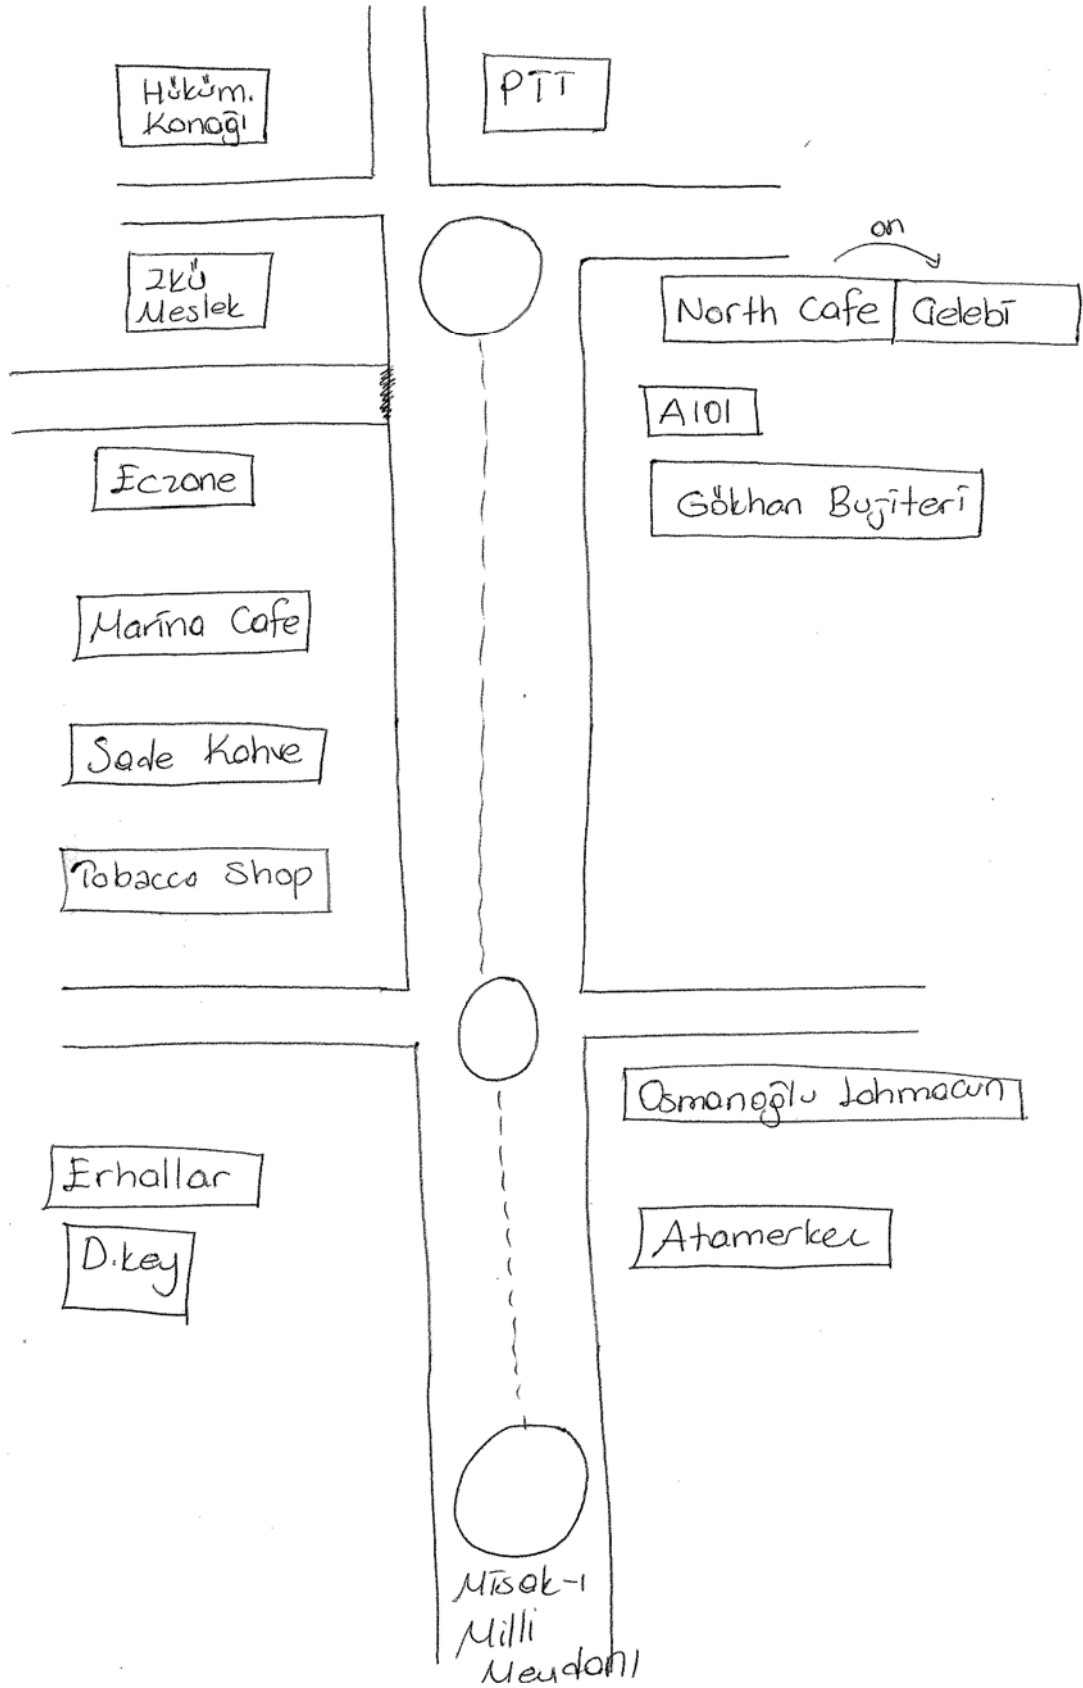 Hüküm.
Konağı
PTT
İKÜ
Meslek
on
North Cafe
Çelebi
A101
Eczane
Gökhan Bujiteri
Marina Cafe
Sade Kahve
Tobacco Shop
Osmanoğlu Lahmacun
Erhallar
Atamerkez
D.key
Misak-ı
Milli
Meydanı